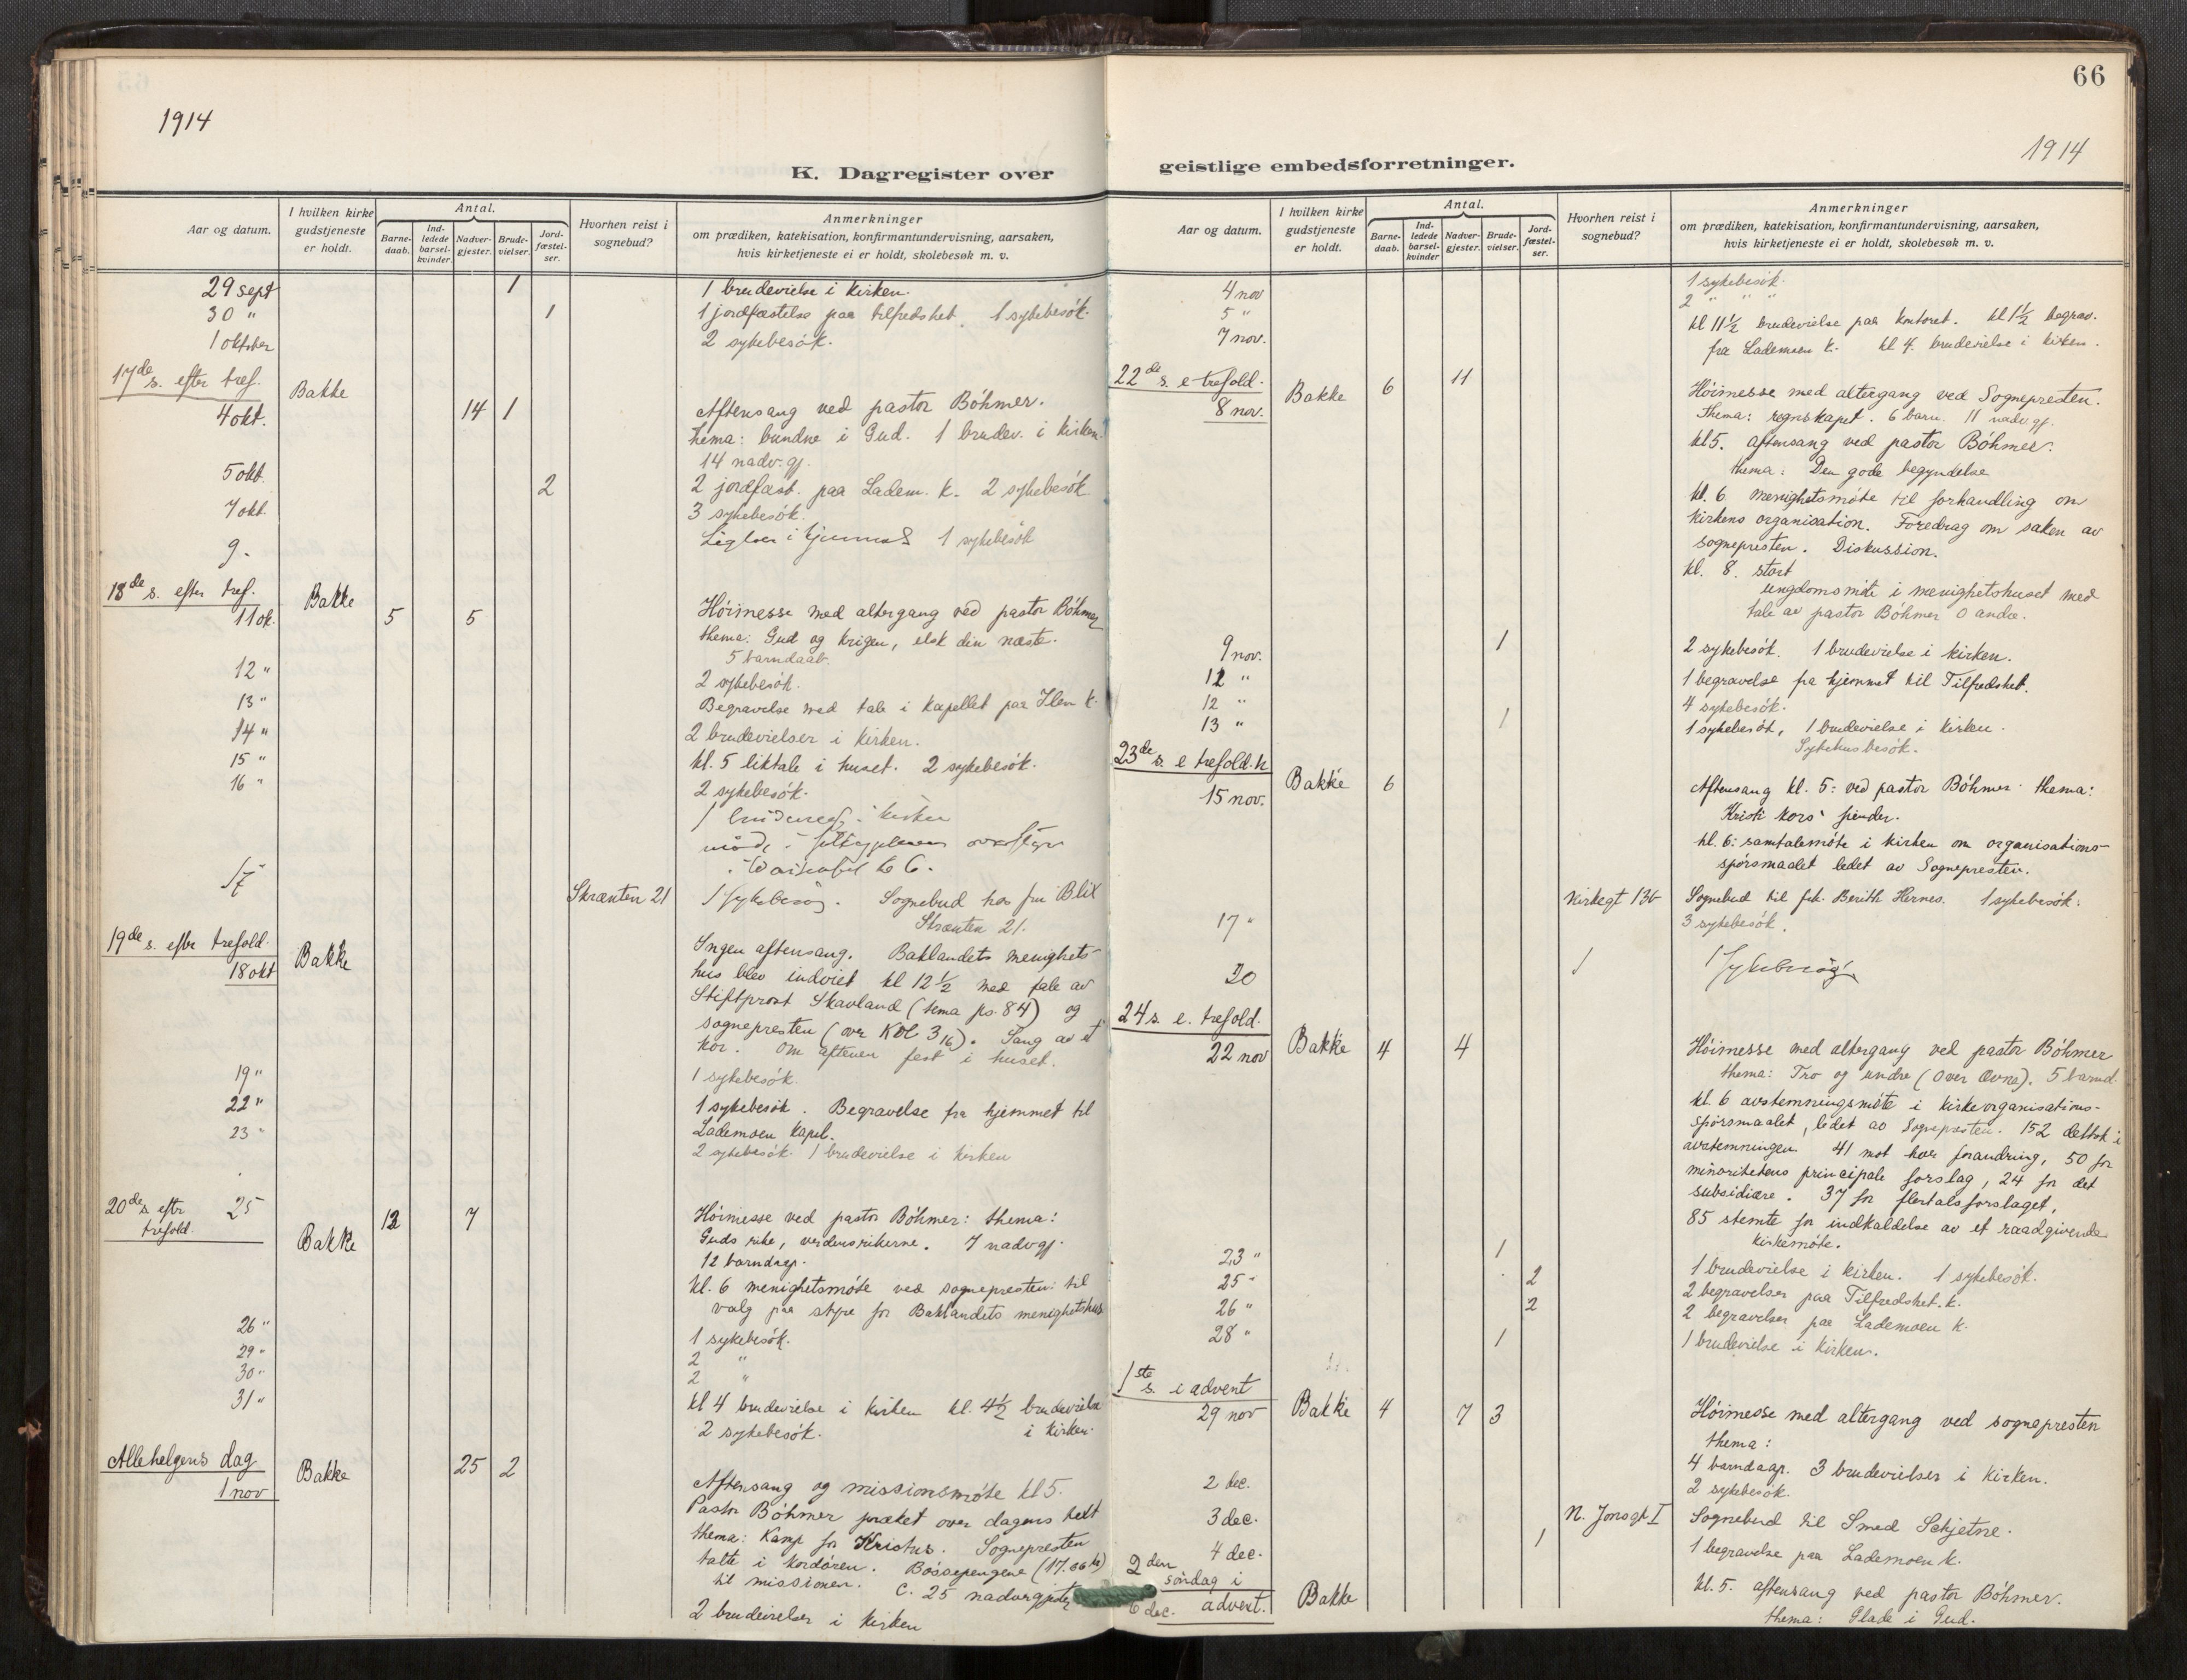 66
1914
1914
K. Dagregister over
geistlige embedsforretninger.
Aar og datum.
I hvilken kirke gudstjeneste er holdt.
Antal.
Barne-daab.
Ind-ledede barsel-kvinder.
Nadver-gjester.
Brude-vielser.
Jord-fæstel-ser.
Hvorhen reist i sognebud?
Anmerkninger
om prædiken, katekisation, konfirmantundervisning, aarsaken,
hvis kirketjeneste ei er holdt, skolebesøk m. v.
29 sept 1 1 brudevielse i kirken.
30 " 1 1 jordfæstelse paa tilfredshet. 1 sykebesök.
1 oktober 2 sykebesök.
17de s. efter tref. Bakke
4 okt. 14 1 Aftensang ved pastor Böhmer.
thema: bundne i Gud. 1 brudev. i kirken.
14 nadv. gj.
5 okt. 2 2 jordfæst. paa Ladem. k. 2 sykebesök.
7 okt. 3 sykebesök.
9. 1 sykebesök
18de s. efter tref. Bakke
11 ok. 5 5 Höimesse med altergang ved pastor Böhmer
thema: Gud og krigen, elsk din næste.
5 barndaab.
12 " 2 sykebesök.
13 " Begravelse med tale i kapellet paa Ilen k.
14 " 2 brudevielser i kirken.
15 " kl. 5 liktale i huset. 2 sykebesök.
16 " 2 sykebesök.
1 i kirken
17 Skrænten 21 1 Sykebesøg. Sognebud hos fru Blix
Skrænten 21.
19de s. efter trefold. Bakke
18 okt Ingen aftensang. Baklandets menighets-
hus blev indviet kl 12 1/2 med tale av
Stiftprost Skavland (tema ps. 84) og
sognepresten (over Kol 3,16). Sang av et
kor. Om aftenen fest i huset.
19 " 1 sykebesök.
22 " 1 sykebesök. Begravelse fra hjemmet til
Lademoen kapel.
23 " 2 sykebesök. 1 brudevielse i kirken
20de s. eftr trefold. 25 Bakke 12 7 Höimesse ved pastor Böhmer: thema:
Guds rike, verdensrikerne. 7 nadvgj.
12 barndaap.
kl. 6 menighetsmöte ved sognepresten til
valg paa styre for Baklandets menighetshus
26 " 1 sykebesök.
29 " 2 "
30 " 2 "
31 " kl 4 brudevielse i kirken kl. 4 1/2 brudevielse
2 sykebesök. i kirken.
Allehelgens dag
1 nov Bakke 25 2 Aftensang og missionsmöte kl 5.
Pastor Böhmer præket over dagens tekst
thema: Kamp for Kristus. Sognepresten
talte i kordören. Bössepengene
til missionen. C. 25 nadvergjester
2 brudevielser i kirken
Aar og datum.
I hvilken kirke gudstjeneste er holdt.
Antal.
Barne-daab.
Ind-ledede barsel-kvinder
Nadver-gjester.
Brude-vielser.
Jord-fæstel-ser.
Hvorhen reist i sognebud?
Anmerkninger
om prædiken, katekisation, konfirmantundervisning, aarsaken,
hvis kirketjeneste ei er holdt, skolebesøk m. v.
4 nov 1 sykebesök.
5 " 2 " "
7 nov. kl 11 1/2 brudevielse paa kontoret. kl 1 1/2 begrav.
fra Lademoen k. kl 4. brudevielse i kirken.
22de s. e trefold.
8 nov. Bakke 6 11 Höimesse med altergang ved Sognepresten.
Thema: regnskapet. 6 barn. 11 nadv. gj.
kl 5. aftensang ved pastor Böhmer.
thema: Den gode begyndelse
kl. 6 menighetsmöte til forhandling om
kirkens organisation. Foredrag om saken av
sognepresten. Diskussion.
kl. 8. stort
ungdomsmöte i menighetshuset med
tale av pastor Böhmer o andre.
9 nov. 1 2 sykebesök. 1 brudevielse i kirken.
12 " 1 begravelse fra hjemmet til Tilfredshet.
12 " 4 sykebesök.
13 " 1 1 sykebesök, 1 brudevielse i kirken.
Sykehusbesök.
23de s. e trefold.h
15 nov. Bakke 6 Aftensang kl. 5: ved pastor Böhmer. thema:
Kristi kors' fiender.
kl. 6: samtalemöte i kirken om organisations-
spörsmaalet ledet av Sognepresten.
Kirkegt 13b Sognebud til frk. Berith Hernes. 1 sykebesök.
17 " 3 sykebesök.
20 1 1 Sykebesøg
24 s. e. trefold.
22 nov Bakke 4 4 Höimesse med altergang ved pastor Böhmer
thema: Tro og undre (over Evna). 5 barnd.
kl. 6 avstemningsmöte i kirkeorganisations-
spörsmaalet, ledet av Sognepresten. 152 deltok i
avstemningen. 41 mot hver forandring, 50 for
minoritetens principale forslag, 24 for det
subsidiære. 37 for flertalsforslaget,
85 stemte for indkaldelse av et raadgivende
kirkemöte.
23 " 1 1 brudevielse i kirken. 1 sykebesök.
25 " 2 2 begravelser paa Tilfredshet. k.
26 " 2 2 begravelser paa Lademoen k.
28 " 1 1 brudevielse i kirken.
1ste s. i advent
29 nov Bakke 4 7 3 Höimesse med altergang ved sognepresten
thema:
4 barndaap. 3 brudevielser i kirken.
2 dec. 2 sykebesök.
3 dec. N. Jonsgt I Sognebud til Smed Schjetne.
4 dec. 1 1 begravelse paa Lademoen k.
2den söndag i advent.
6 dec. Bakke kl. 5. aftensang ved pastor Böhmer.
thema: Glade i Gud.